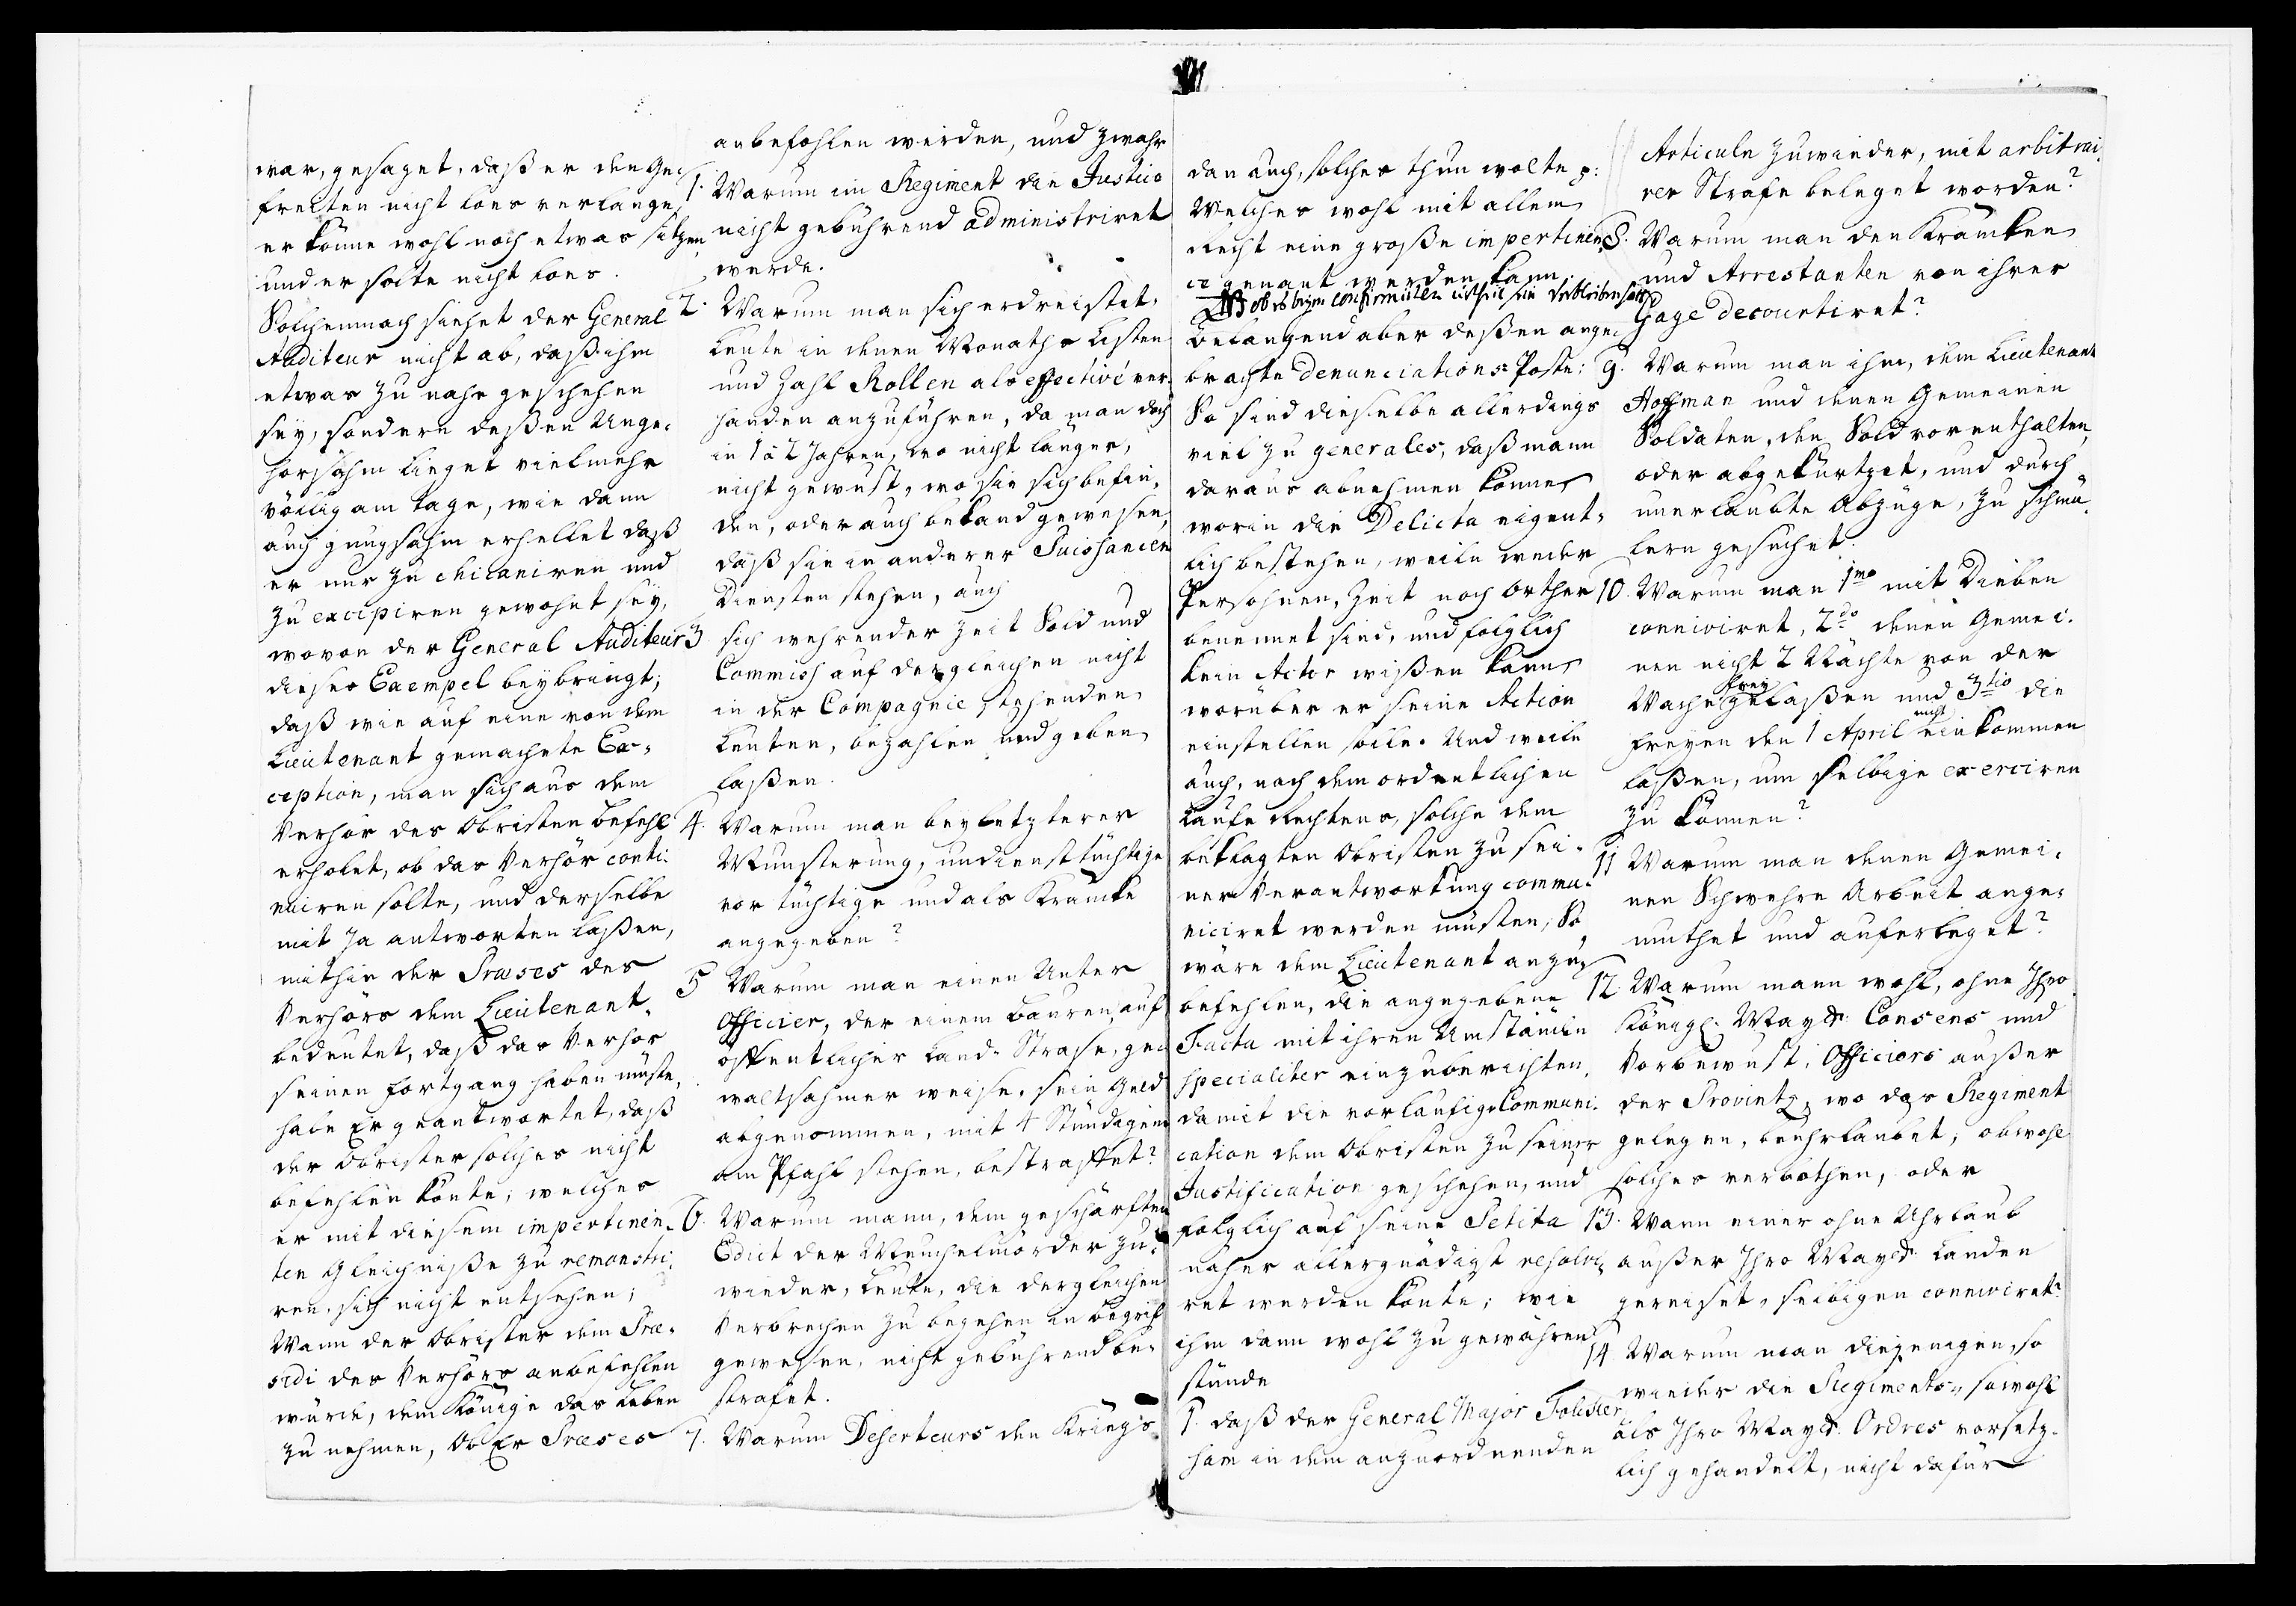 war, gesaget, daß er den Ge¬
freiten nicht loes verlange,
er könne wohl noch etwas sitzen,
und er solte nicht loes.
Solchemnach siehet der General
Auditeur nicht ab, daß ihm
etwas zu nahe geschehen
sey, sondern deßen Unge¬
horsahm lieget vielmehr
völlig am tage, wie dann
auch gnugsahm erhellet daß
er nur zu chicaniren und
zu excipiren gewohnt sey,
wovon der General Auditeur
dieses Exempel beybringt;
daß wie auf eine von dem
Lieutenant gemachete Ex¬
ception, man sich aus dem
Verhör des Obristen Befehl
erholet, ob das Verhör conti¬
nuiren solte, und derselbe
mit Ja antworten laßen,
mithin der Præses des
Verhörs dem Lieutenant
bedeutet, daß das Verhör
seinen fortgang haben müste,
habe Er geantwortet, daß
der Obrister solches nicht
befehlen könte; welches
er mit diesem impertinen¬
ten Gleichniße zu remonstri¬
ren sich nicht entsehen;
Wann der Obrister dem Præ¬
sidi des Verhörs anbefehlen
würde, dem Könige das Leben
zu nehmen, Ob Er Præses
anbefohlen werden, und zwahr
1. Warum im Regiment die Justice
nicht gebührend administriret
werde.
2. Warum man sich erdreistet,
Leute in denen Monaths Listen
und Zahl Rollen als effectivé ver¬
handen anzuführen, da man doch
in 1 à 2 Jahren, wo nicht länger,
nicht gewust, wo sie sich befin¬
den, oder auch bekand gewesen,
daß sie in anderer Puissancen
Diensten stehen, auch
3 sich wehrender Zeit Sold und
Commiss auf dergleichen nicht
in der Compagnie stehenden
Leuten, bezahlen und geben
laßen.
4. Warum man bey letzterer
Munsterung, undienst tüchtige
vor tüchtige und als Krancke
angegeben?
5 Warum man einen Unter
Officier, der einem Bauren, auf
öffentlicher Land-Strase, ge¬
waltsahmer weise, sein Geld
abgenommen, mit 4 Stündigem
am Pfahl stehen, bestraffet?
6. Warum mann, dem geschärften
Edict der Meuchelmörder zu¬
wieder, Leute, die dergleichen
Verbrechen zu begehen in begrif
gewesen, nicht gebührend be¬
strafet.
7. Warum Deserteurs den Kriegs
dan auch, solches thun wolte p:
Welches wohl mit allem
Recht eine große impertinen¬
ce genant werden kann.
NB ob es beym confirmirten
Belangend aber deßen ange¬
brachte denunciations-Poste:
So sind dieselbe allerdings
viel zu generales, daß mann
daraus abnehmen könne,
worin die Delicta eigent¬
lich bestehen, weiln weder
Persohnen, Zeit noch Orther
benennet sind, und folglich
kein Actor wißen kann,
worüber er seine Action
einstellen solle. Und weiln
auch, nach dem ordentlichen
Laufe Rechtens, solche dem
beklagten Obristen zu sei¬
ner Verantwortung commu¬
niciret werden müsten; So
wäre dem Lieutenant anzu¬
befehlen, die angegebene
Facta mit ihren Umständen
specialiter einzuberichten,
damit die vorläufige Communi¬
cation dem Obristen zu seiner
Justification geschehen, und
folglich auf seine Petita
näher allergnädigst resolvi¬
ret werden könte; wie
ihm dann wohl zu gewähren
stünde
1. daß der General Major Folcker¬
ham in dem anzuordnenden
Articuln zuwieder, mit arbitrai¬
rer Strafe beleget worden?
8. Warum man den Krancken
und Arrestanten von ihrer
Gage decourtiret?
9. Warum man ihm, dem Lieutenant
Hoffman und denen Gemeinen
Soldaten, den Sold vorenthalten,
oder abgekürtzet, und durch
unerlaubte Abzüge, zu schmä¬
lern gesuchet.
10. Warum man 1mo mit Dieben
conniviret, 2do denen Gemei¬
nen nicht 2 Nächte von der
Wache frey gelaßen und 3tio die
freyen den 1 April nicht einkommen
laßen, um selbige exerciren
zu können?
11 Warum man denen Gemei¬
nen Schwehre Arbeit ange¬
muthet und auferleget?
12. Warum mann wohl, ohne Ihro
Königl. Mayst. Consens und
Vorbewust, Officiers außer
der Provintz, wo das Regiment
gelegen, beuhrlaubet; obwohl
solches verbothen, oder
13. Wann einer ohne Uhrlaub
außer Ihro Mayst. Landen
gereiset, selbigen conniviret?
14 Warum man diejenigen, so
wieder die Regiments-, sowohl
als Ihro Mayst. Ordres vorsetz¬
lich gehandelt, nicht dafür